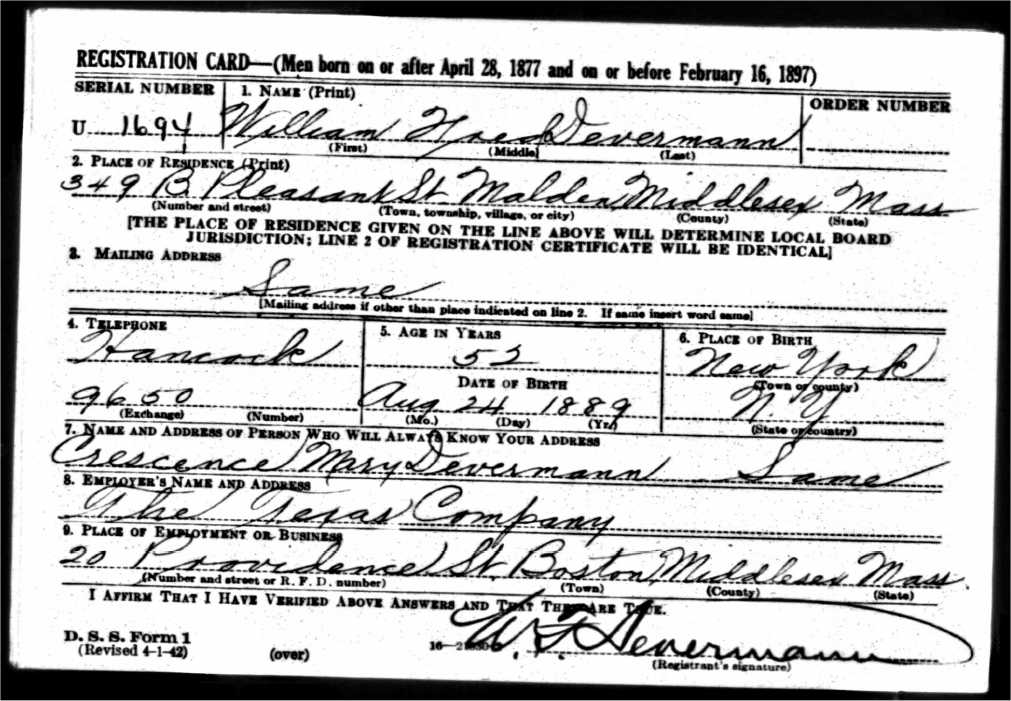 REGISTRATION CARD—(Men born on or after April 28, 1877 and on or before February 16, 1897)
SERIAL NUMBER 1. NAME (Print) ORDER NUMBER
U 1694 William Fred Devermann
(First) (Middle) (Last)
2. PLACE OF RESIDENCE (Print)
349 B. Pleasant St. Malden Middlesex Mass
(Number and street) (Town, township, village, or city) (County) (State)
[THE PLACE OF RESIDENCE GIVEN ON THE LINE ABOVE WILL DETERMINE LOCAL BOARD
JURISDICTION; LINE 2 OF REGISTRATION CERTIFICATE WILL BE IDENTICAL]
3. MAILING ADDRESS
Same
[Mailing address if other than place indicated on line 2. If same insert word same]
4. TELEPHONE 5. AGE IN YEARS 6. PLACE OF BIRTH
Hancock 52 New York
DATE OF BIRTH (Town or county)
9650 Aug 24 1889 N.Y.
(Exchange) (Number) (Mo.) (Day) (Yr.) (State or country)
7. NAME AND ADDRESS OF PERSON WHO WILL ALWAYS KNOW YOUR ADDRESS
Crescence Mary Devermann Same
8. EMPLOYER'S NAME AND ADDRESS
The Texas Company
9. PLACE OF EMPLOYMENT OR BUSINESS
20 Providence St. Boston Middlesex Mass.
(Number and street or R. F. D. number) (Town) (County) (State)
I AFFIRM THAT I HAVE VERIFIED ABOVE ANSWERS AND THAT THEY ARE TRUE.
D. S. S. Form 1
(Revised 4-1-42) (over) W. F. Devermann
(Registrant's signature)